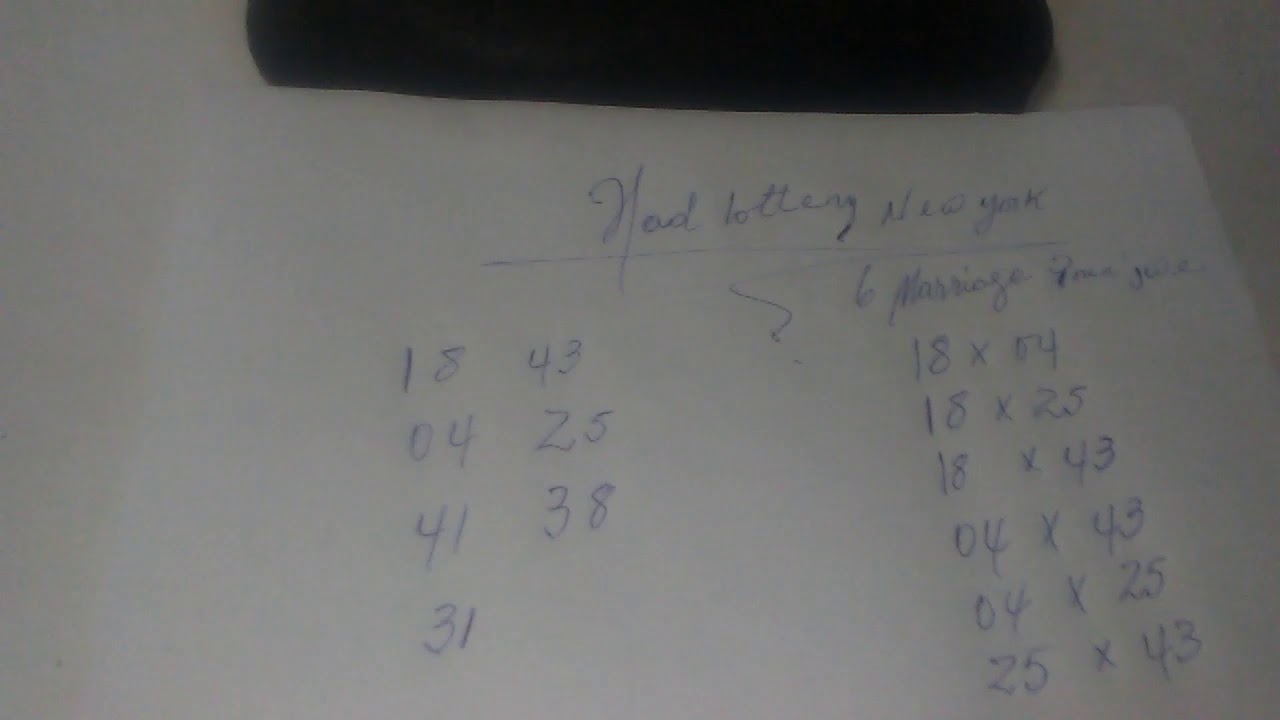 Had lottery New york
6 Marriage
18 43
04 25
41 38
31
18 x 04
18 x 25
18 x 43
04 x 43
04 x 25
25 x 43